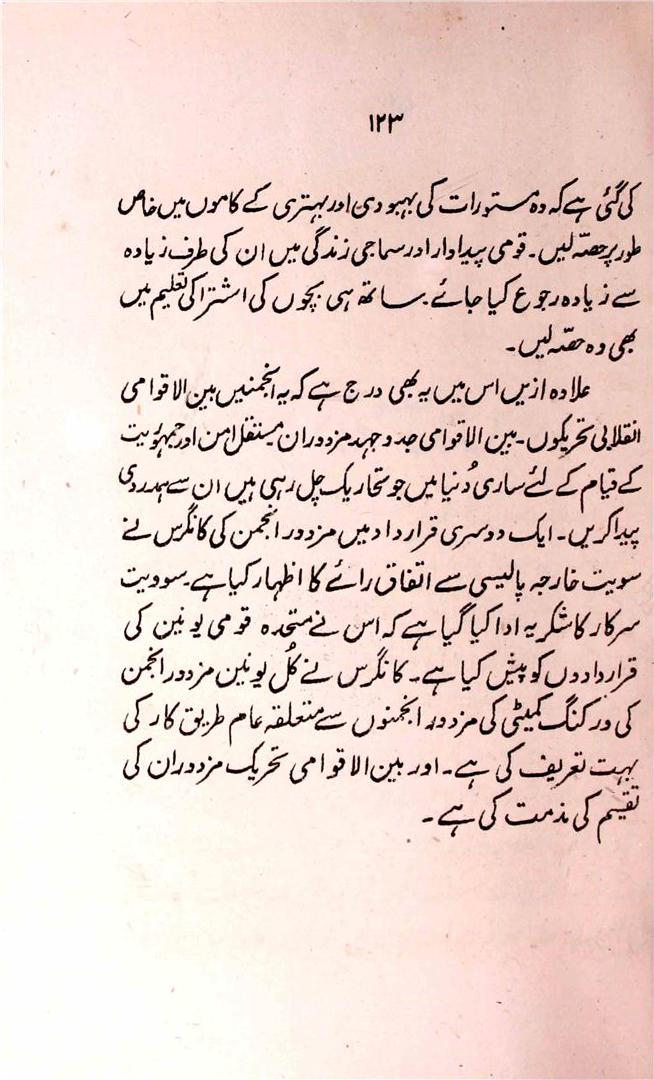 ۱۲۳
کی گئی ہے کہ وہ مستورات کی بہبودی اور بہتری کے کاموں میں خاص
طور پر حصّہ لیں۔ قومی پیداوار اور سماجی زندگی میں ان کی طرف زیادہ
سے زیادہ رجوع کیا جائے۔ ساتھ ہی بچوں کی اشتراکی تعلیم میں
بھی وہ حصّہ لیں۔
علاوہ ازیں اس میں یہ بھی درج ہے کہ یہ انجمنیں بین الاقوامی
انقلابی تحریکوں۔ بین الاقوامی جدوجہد مزدوران مستقل امن اور جمہوریت
کے قیام کے لئے ساری دُنیا میں جو تحاریک چل رہی ہیں ان سے ہمدردی
پیدا کریں۔ ایک دوسری قرارداد میں مزدور انجمن کی کانگرس نے
سویت خارجہ پالیسی سے اتفاق رائے کا اظہار کیا ہے۔ سوویت
سرکار کا شکریہ ادا کیا گیا ہے کہ اس نے متحدہ قومی یونین کی
قراردادوں کو پیش کیا ہے۔ کانگرس نے کُل یونین مزدور انجمن
کی ورکنگ کمیٹی کی مزدور انجمنوں سے متعلقہ عام طریق کار کی
بہت تعریف کی ہے۔ اور بین الاقوامی تحریک مزدوران کی
تقسیم کی مذمت کی ہے۔